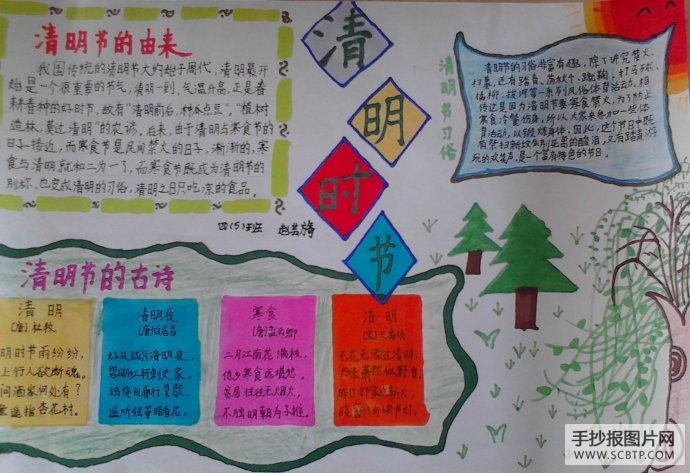 清明节的由来
我国传统的清明节大约始于周代，清明最开
始是一个很重要的节气，清明一到，气温升高，正是春
耕春种的好时节，故有“清明前后，种瓜点豆”。“植树
造林，莫过清明”的农谚。后来，由于清明与寒食节的
日子接近，而寒食节是民间禁火的日子，渐渐的，寒
食与清明就和二为一了，而寒食节既成为清明节的
别称，也变成清明的习俗，清明之日只吃凉的食品。
四(5)班
清
明
时
节
清明节习俗
清明节的习俗丰富有趣，除了讲究禁火、
扫墓，还有踏青、荡秋千、蹴鞠、打马球、
插柳、拔河等一系列风俗体育活动。相
传这是因为清明节要寒食禁火，为了防止
寒食冷餐伤身，所以大家来参加一些体
育活动，以锻炼身体。因此，这个节日中既
有祭扫新坟生别死离的酸泪，又有踏青游
玩的欢笑声，是一个富有特色的节日。
清明节的古诗
清明
[唐]杜牧
明时节雨纷纷，
上行人欲断魂。
问酒家何处有？
童遥指杏花村。
清明夜
[唐]白居易
好风胧月清明夜，
碧明红轩刺史家。
独绕回廊行复歇，
遥听弦管暗看花。
寒食
[唐]孟云卿
二月江南花满枝，
他乡寒食远堪悲。
贫居往往无烟火，
不独明朝为子推。
清明
无花无酒过清明，
昨日邻家
手抄报图片网
WWW.SCBTP.COM